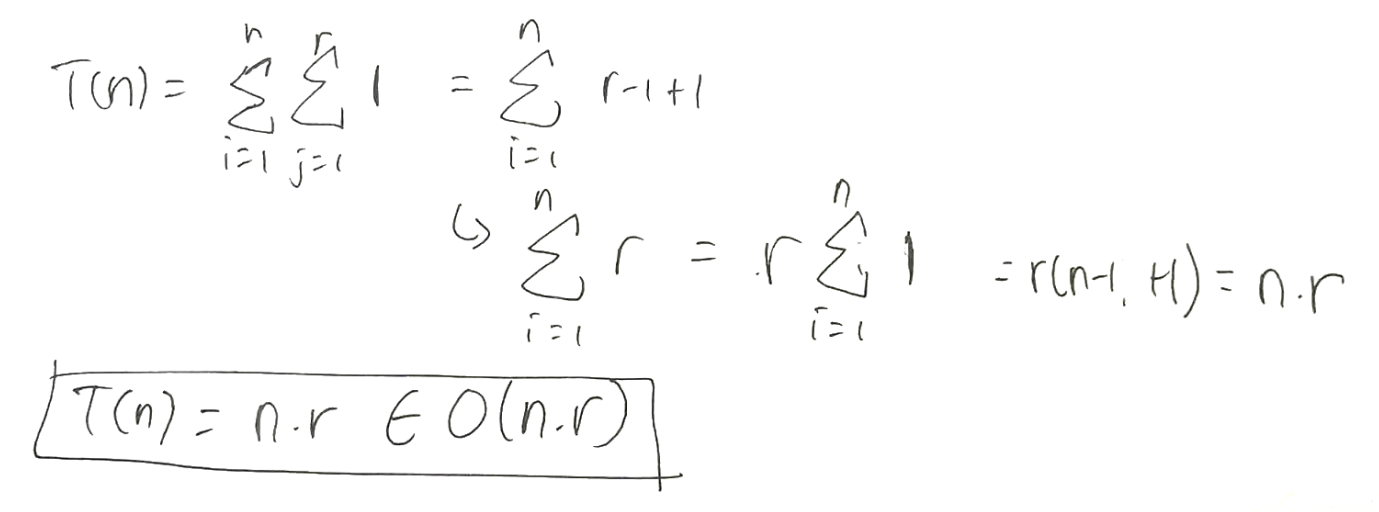 T(n) = \sum_{i=1}^{n} \sum_{j=1}^{r} 1 = \sum_{i=1}^{n} r-1+1
↳ \sum_{i=1}^{n} r = r \sum_{i=1}^{n} 1 = r(n-1+1) = n.r
T(n) = n.r ∈ O(n.r)